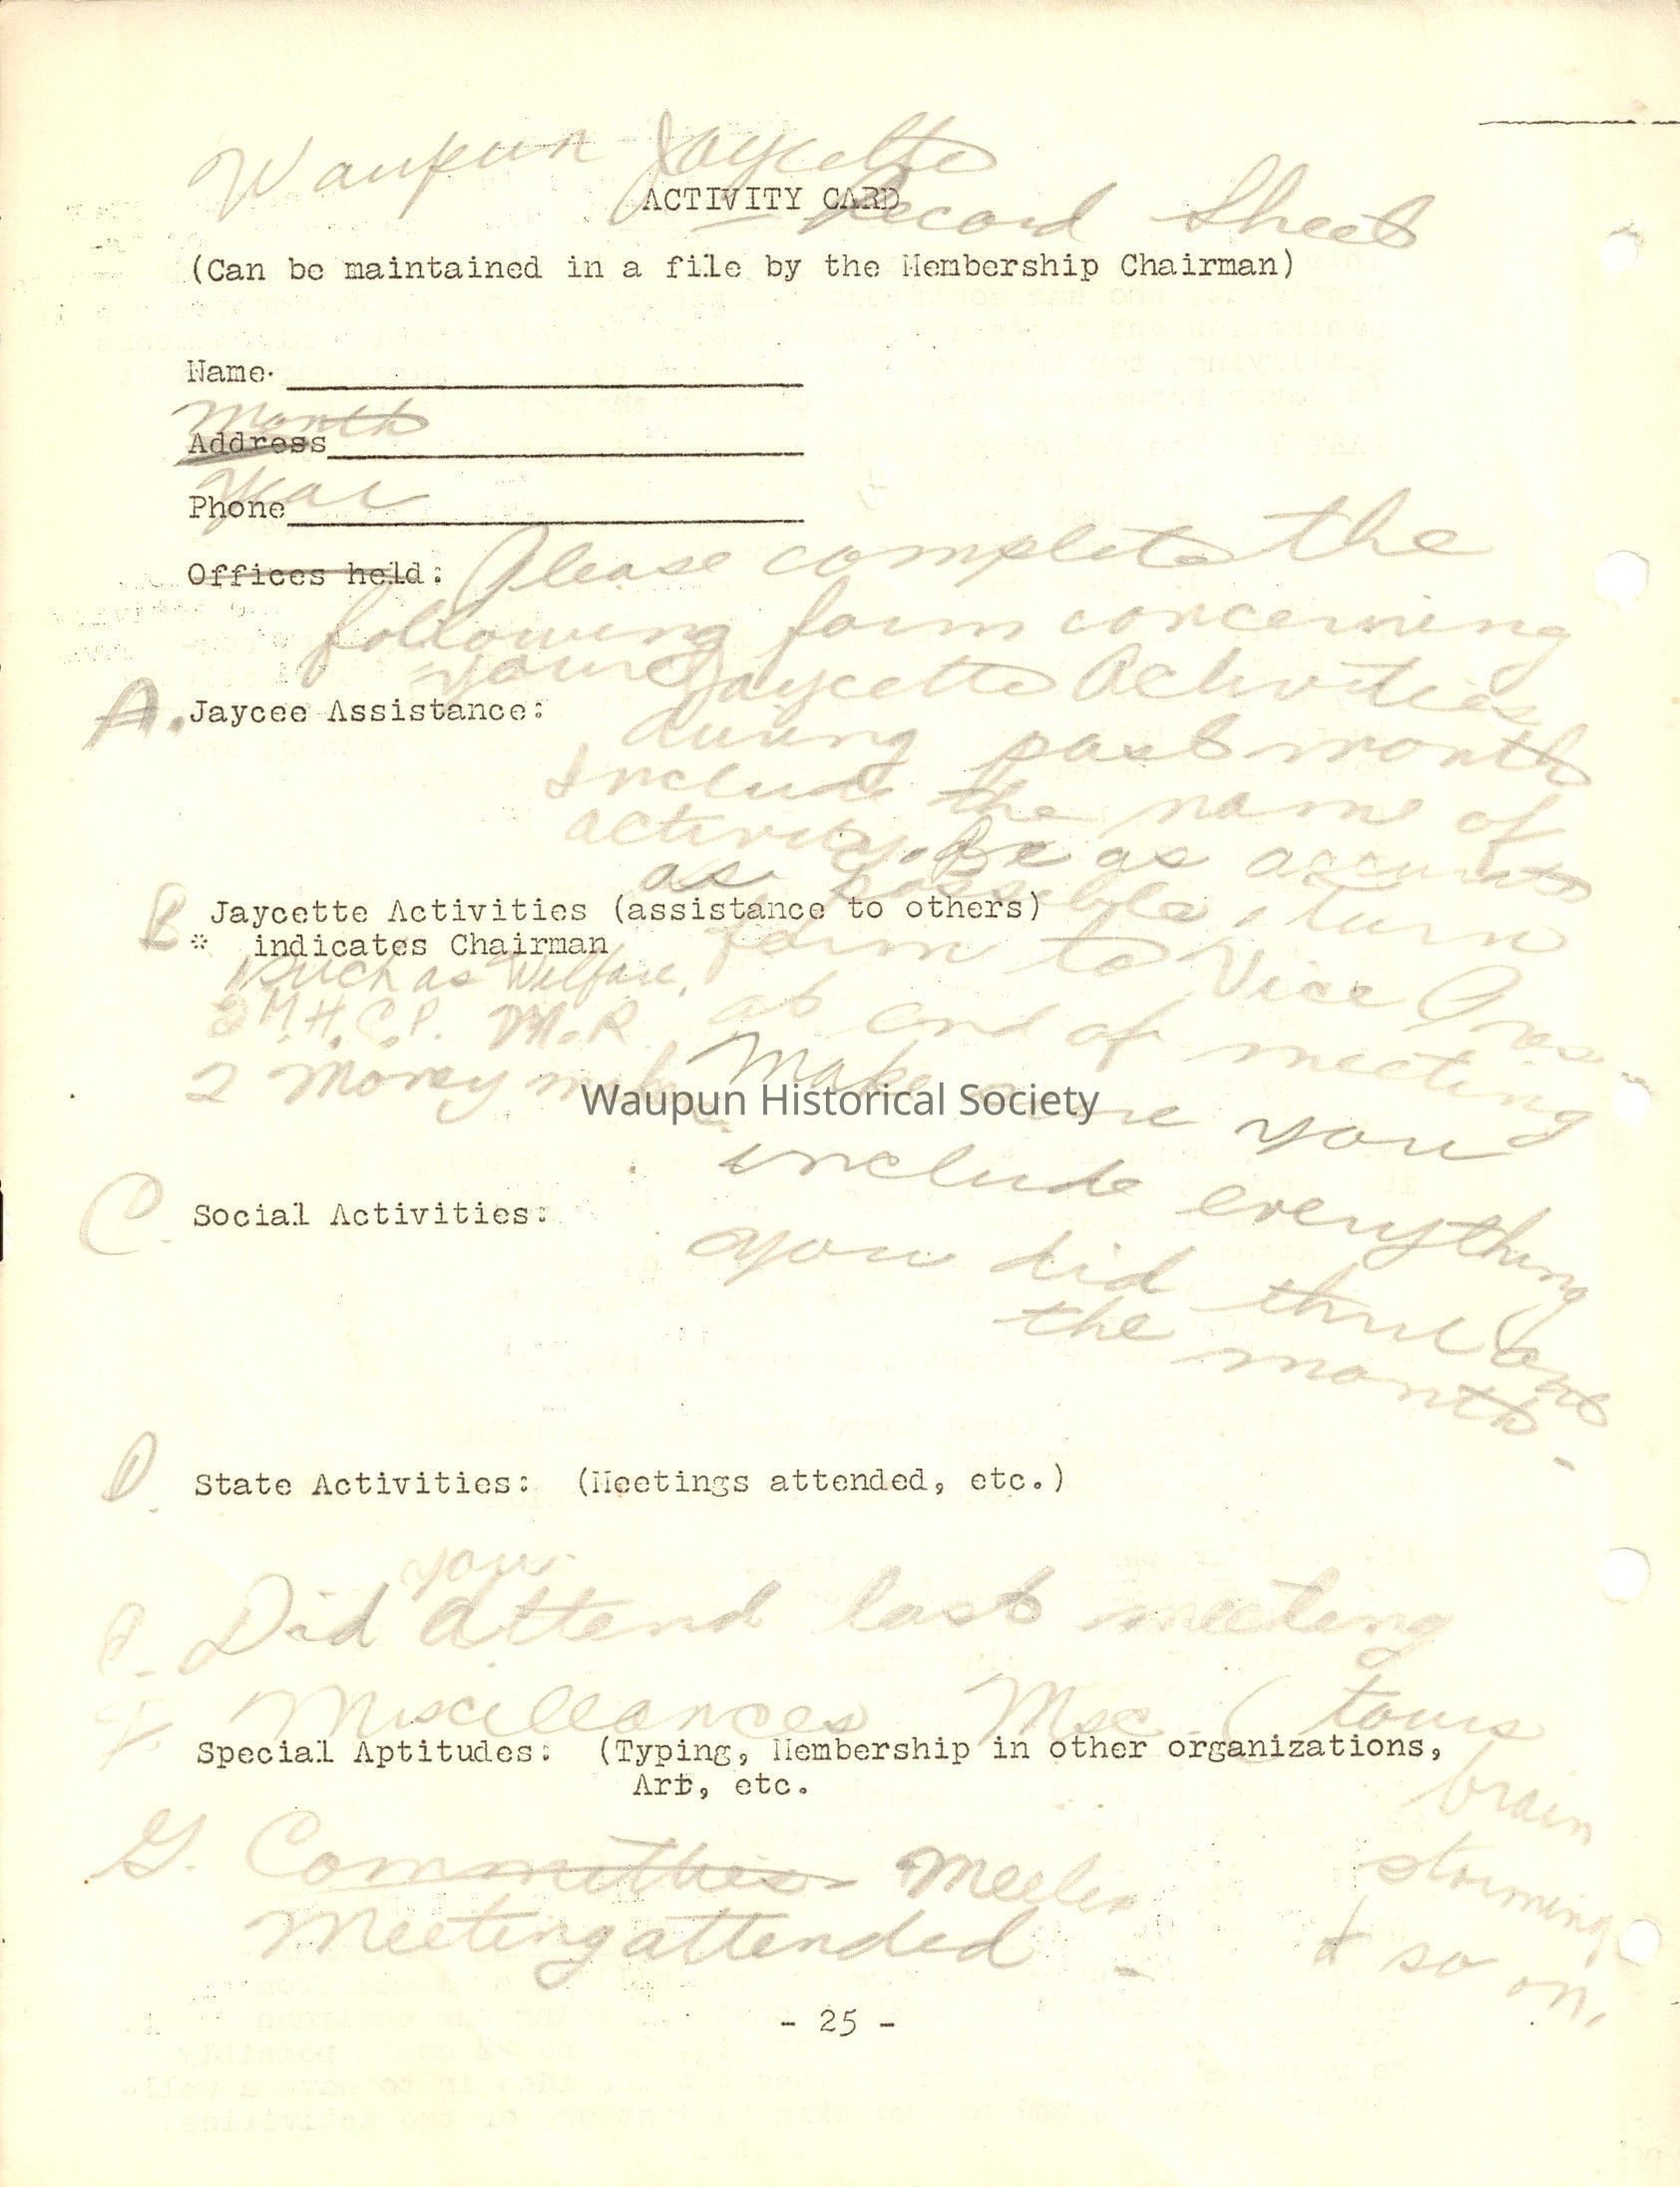 Waupun Jaycette
ACTIVITY CARD
Record Sheet
(Can be maintained in a file by the Membership Chairman)
Name
Month
Address
Year
Phone
Offices held:
Please complete the
following form concerning
your Jaycette Activities
A. Jaycee Assistance:
during past month
Include the name of
activity. Be as accurate
as possible, turn
B Jaycette Activities (assistance to others)
* indicates Chairman
form to Vice Pres-
such as Welfare,
2 M.H. C.P. M.R.
at end of meeting
2 Money
Make sure you
Waupun Historical Society
include everything
C. Social Activities:
you did thru out
the month-
D. State Activities: (Meetings attended, etc.)
you
E. Did attend last meeting
F. Miscillances Msc. (tours
Special Aptitudes: (Typing, Membership in other organizations,
Art, etc.
brain
storming
+ so on,
G. Committies
Meeting attended -
- 25 -